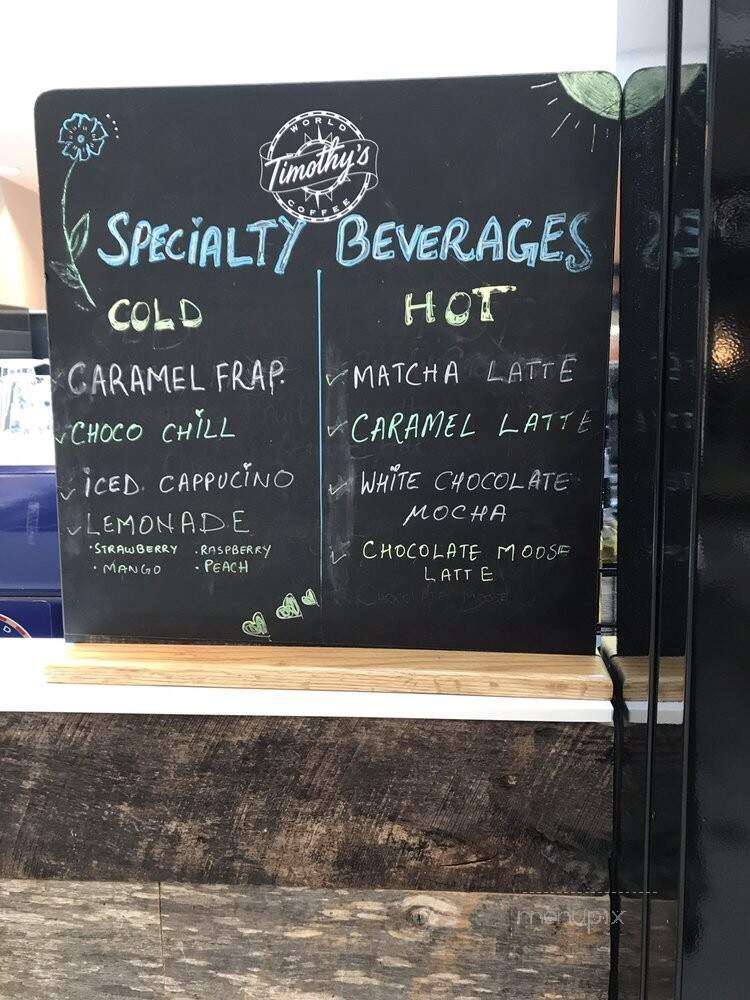 WORLD
Timothy's
COFFEE
SPECIALTY BEVERAGES
COLD
CARAMEL FRAP.
CHOCO CHILL
ICED. CAPPUCINO
LEMONADE
• STRAWBERRY • RASPBERRY
• MANGO • PEACH
HOT
MATCHA LATTE
CARAMEL LATTE
WHITE CHOCOLATE
MOCHA
CHOCOLATE MOOSE
LATTE
CHOCOLATE MOOSE
menupix